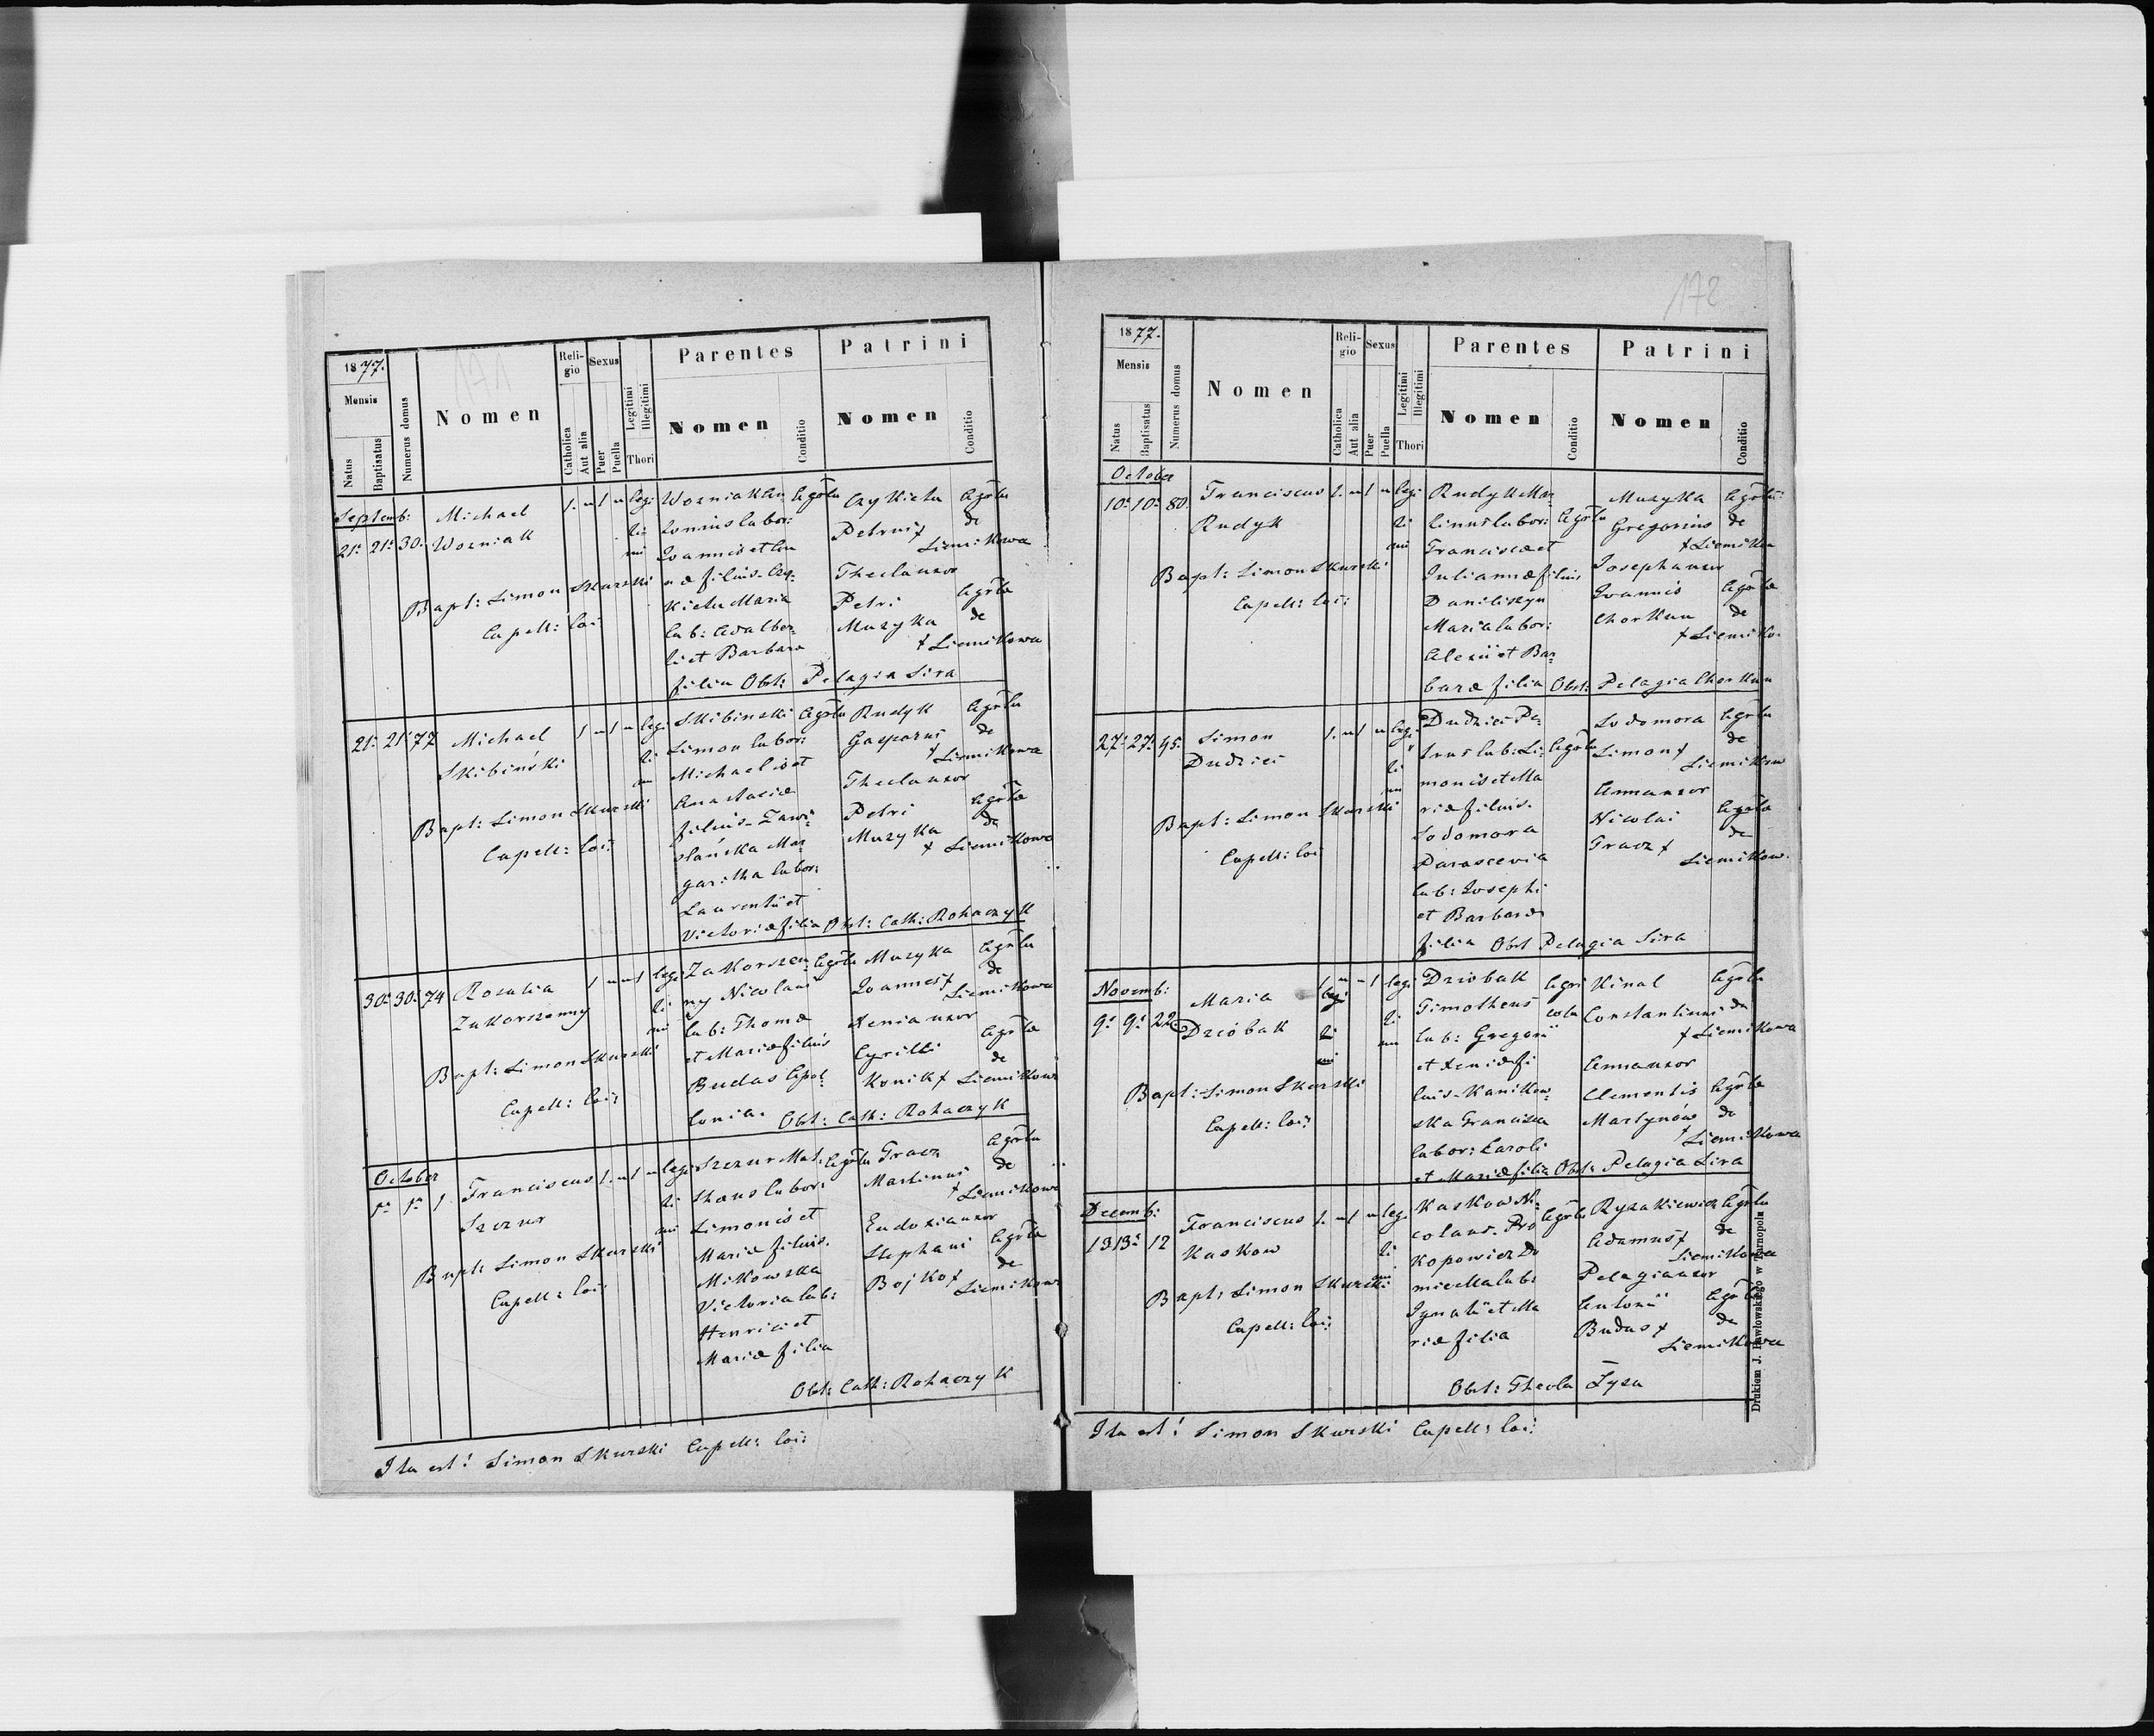 171
1877.
Mensis
Natus
Baptisatus
Numerus domus
Nomen
Religio
Catholica
Aut alia
Sexus
Puer
Puella
Legitimi
Illegitimi
Thori
Parentes
Nomen
Conditio
Patrini
Nomen
Conditio
Septemb:
21. 21. 30.
Michael
Wozniak
Bapt: Simon Skurski
Capell: loi:
1. " 1 "
legi
ti
mi
Wozniak An
tonius labor:
Joannis et An
næ filius. Czy-
Kieta Maria
lab: Adalber-
ti et Barbara
filia Obst: Pelagia Sira
Agrla
Czykieta
Petrus †
Thecla uxor
Petri
Muzyka
Agrla
de
Siemikowa
Agrla
de
† Siemikowa
21. 21. 77
Michael
Skibiński
Bapt: Simon Skurski
Capell: loi:
1 " 1 "
legi
ti
mi
Skibinski
Simon labor:
Michaelis et
Anastasiæ
filius. Zawi-
słańska Mar-
garitha labor:
Laurentii et
Victoriæ filia Obst: Cath: Rohaczyk
Agrla
Rudyk
Gasparus
Thecla uxor
Petri
Muzyka
Agrla
de
† Siemikowa
Agrla
de
† Siemikowa
30. 30. 74
Rosalia
Zakorszenny
Bapt: Simon Skurski
Capell: loi:
1 " " 1
legi
ti
mi
Zakorszen-
ny Nicolaus
lab: Thomæ
et Mariæ filius
Budas Apol-
lonia. Obst: Cath: Rohaczyk
Agrla
Muzyka
Joannes †
Xenia uxor
Cyrilli
Konik †
Agrla
de
Siemikowa
Agrla
de
Siemikowa
October
1. 1. 1.
Franciscus
Szczur
Bapt: Simon Skurski
Capell: loi:
1. " 1 "
legi
ti
mi
Szczur Mat-
thæus labor:
Simonis et
Mariæ filius.
Mikowska
Victoria lab:
Henrici et
Mariæ filia
Obst: Cath: Rohaczyk
Agrla
Tracz
Martinus
Eudoxia uxor
Stephani
Bojko †
Agrla
de
† Siemikowa
Agrla
de
Siemikowa
Ita est! Simon Skurski Capell: loi:
172
1877.
Mensis
Natus
Baptisatus
Numerus domus
Nomen
Religio
Catholica
Aut alia
Sexus
Puer
Puella
Legitimi
Illegitimi
Thori
Parentes
Nomen
Conditio
Patrini
Nomen
Conditio
October
10. 10. 80.
Franciscus
Rudyk
Bapt: Simon Skurski
Capell: loi:
1. " 1 "
legi
ti
mi
Rudyk Mar-
tinus labor:
Francisci et
Juliannæ filius
Daniliszyn
Maria labor:
Alexii et Bar-
baræ filia Obst: Pelagia Chorkun
Agrla
Muzyka
Gregorius
Josepha uxor
Joannis
Chorkun
Agrla
de
† Siemikow
Agrla
de
† Siemiko.
27. 27. 45.
Simon
Dudzici
Bapt: Simon Skurski
Capell: loi
1. " 1 "
legi
ti
mi
Dudzici Pe-
trus lab: Si-
monis et Ma
riæ filius.
Sodomora
Parascevia
lab: Josephi
et Barbaræ
filia Obst Pelagia Sira
Agrla
Sodomora
Simon †
Anna uxor
Nicolai
Tracz †
Agrla
de
Siemikow
Agrla
de
Siemikow.
Novemb:
9. 9. 22.
Maria
Dziobak
Bapt: Simon Skurski
Capell: loi:
1 " " 1
legi
ti
mi
Dziobak
Timotheus
lab: Gregorii
et Xeniæ fi
lius. Kanikow-
ska Francisca
labor: Caroli
et Mariæ filia Obst: Pelagia Sira
Agri
cola
Kinal
Constantinus
Anna uxor
Clementis
Martynów
Agrla
de
† Siemikowa
Agrla
de
† Siemikowa
Decemb:
13 13. 12
Franciscus
Kaskow
Bapt: Simon Skurski
Capell: loi:
1. " 1 "
legi
ti
mi
Kaskow Ni-
colaus. Pro
kopowicz Do
micella lab:
Ignatii et Ma
riæ filia
Obst: Thecla Łysa
Agrla
Ryzakiewicz
Adamus †
Pelagia uxor
Antonii
Budas †
Agrla
de
Siemikowa
Agrla
de
Siemikowa
Ita est! Simon Skurski Capell: loi:
Drukiem J. Pawłowskiego w Tarnopolu